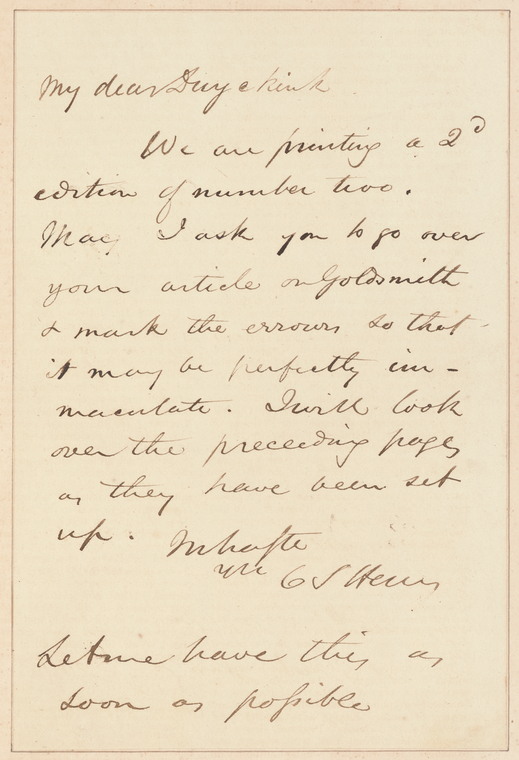 My dear Duyckink
We are printing a 2d
edition of number two.
May I ask you to go over
your article on Goldsmith
& mark the errours so that
it may be perfectly im-
maculate. I will look
over the preceeding pages
as they have been set
up. In haste
yrs C S Henry
Let me have this as
soon as possible